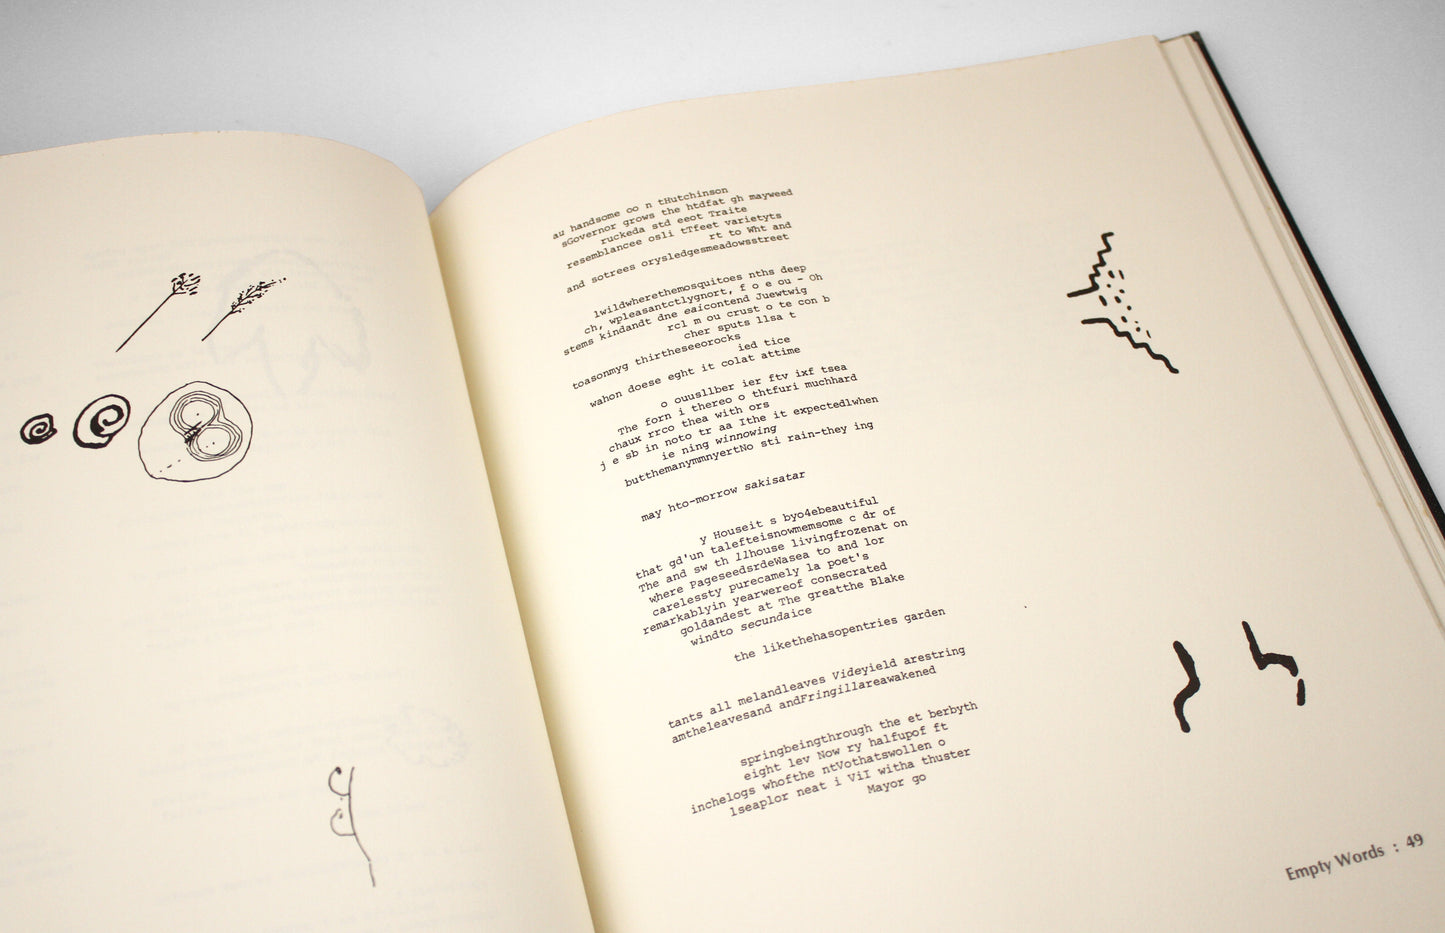 au handsome oo n tHutchinson
sGovernor grows the htdfat gh mayweed
ruckeda std eeot Traite
resemblancee osli tTfeet varietyts
rt to Wht and
and sotrees orysledgesmeadowsstreet
lwildwherethemosquitoes nths deep
ch, wpleasantctlygnort, f o e ou - Oh
stems kindandt dne eaicontend Juewtwig
rcl m ou crust o te con b
cher sputs llsa t
toasonmyg thirtheseeorocks
ied tice
wahon doese eght it colat attime
o ouusllber ier ftv ixf tsea
The forn i thereo o thtfuri muchhard
chaux rrco thea with ors
j e sb in noto tr aa Ithe it expectedlwhen
ie ning winnowing
butthemanymmnyertNo sti rain-they ing
may hto-morrow sakisatar
y Houseit s byo4ebeautiful
that gd'un talefteisnowmemsome c dr of
The and sw th llhouse livingfrozenat on
where PageseedsrdeWasea to and lor
carelessty purecamely la poet's
remarkablyin yearwereof consecrated
goldandest at The greatthe Blake
windto secundaice
the likethehasopentries garden
tants all melandleaves Videyield arestring
amtheleavesand andFringillareawakened
springbeingthrough the et berbyth
eight lev Now ry halfupof ft
inchelogs whofthe ntVothatswollen o
lseaplor neat i ViI witha thuster
Mayor go
Empty Words : 49